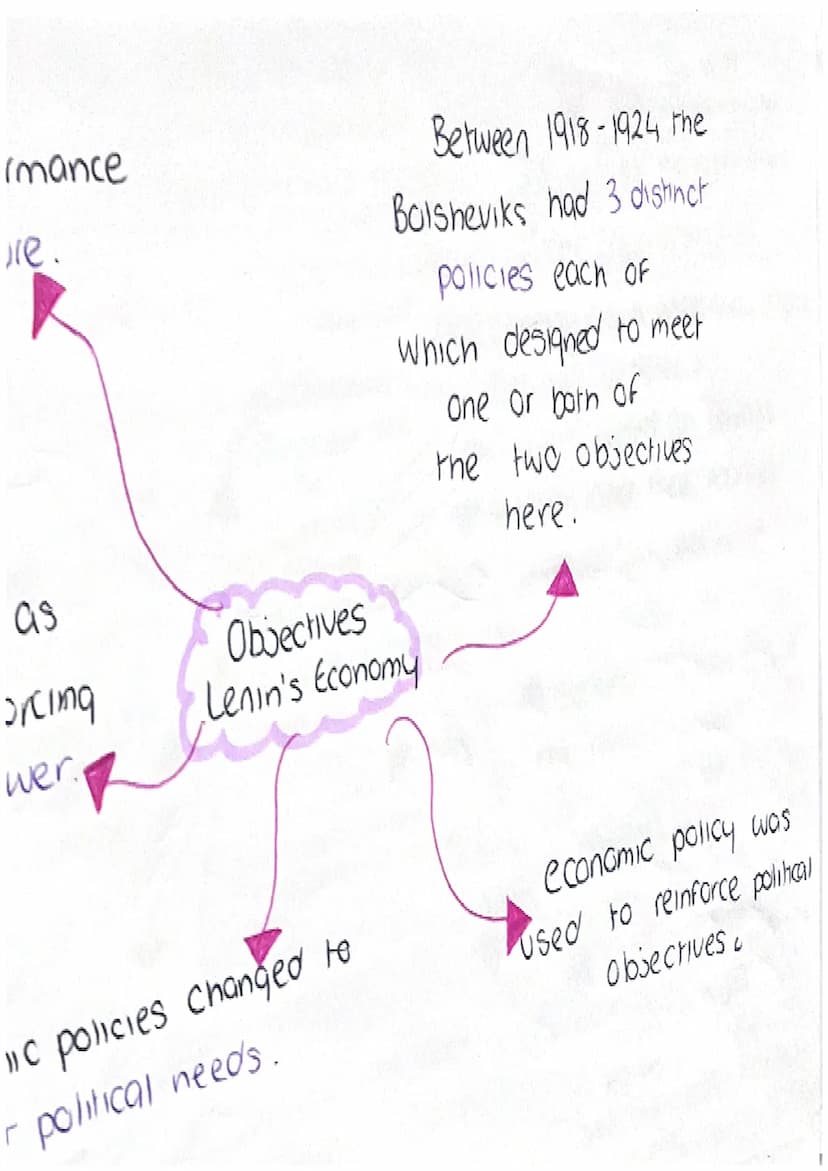 rmance
re.
Between 1918-1924 the
Bolsheviks had 3 distinct
policies each of
which designed to meet
one or both of
the two objectives
here.
as
orcing
wer.
Objectives
Lenin's Economy
economic policy was
used to reinforce political
objectives.
ic policies changed to
r political needs.